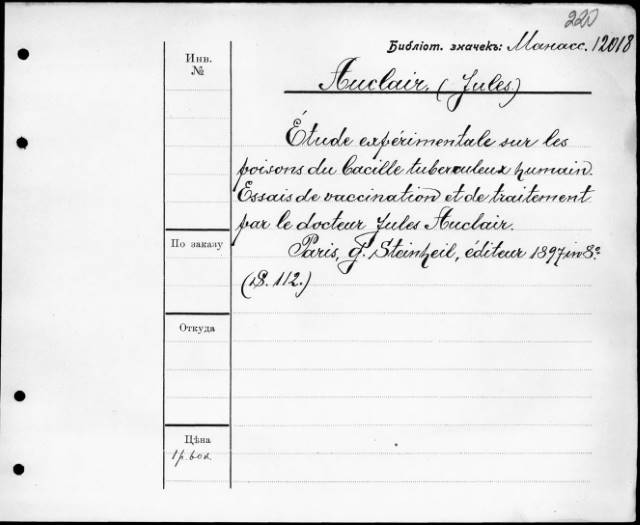 220
Библіот. значекъ: Манасс. 12018
Инв.
№
Auclair. (Jules)
Étude expérimentale sur les
poisons du bacille tuberculeux humain.
Essais de vaccination et de traitement
par le docteur Jules Auclair.
Paris, G. Steinheil, éditeur 1897 in 8º
(S. 112.)
По заказу
Откуда
Цѣна
1 р. 60 к